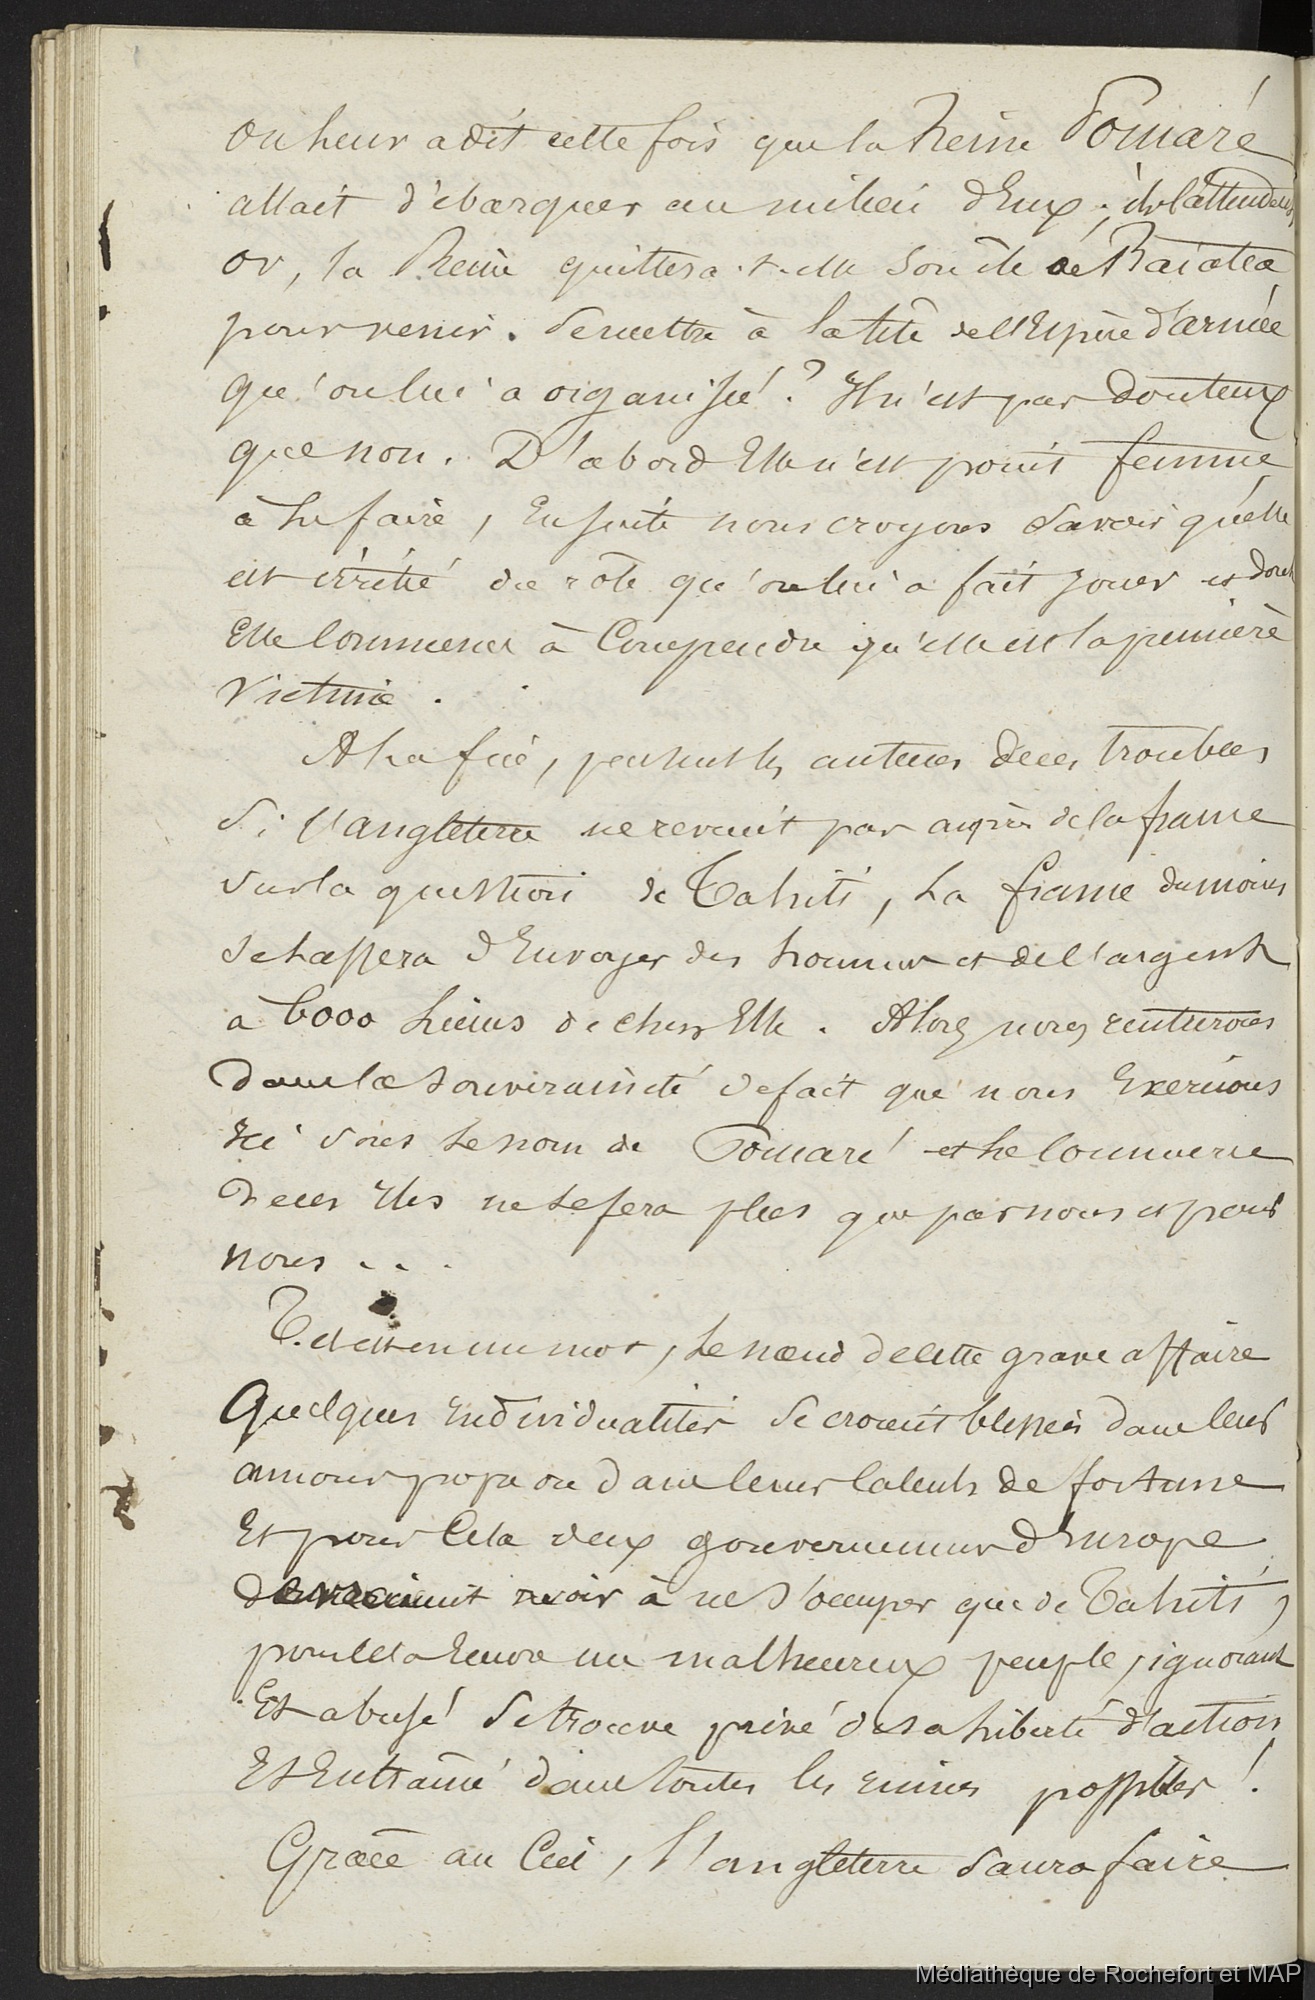 On leur a dit cette fois que la Reine Pomaré
allait débarquer au milieu d'Eux ; ils l'attendent,
or, la Reine quittera-t-elle son île de Raiatea
pour venir se mettre à la tête de l'Espèce d'armée
qu'on lui a organisée ? Il n'est pas douteux
que non. D'abord Elle n'est point femme
à le faire, Ensuite nous croyons savoir qu'elle
est irritée du rôle qu'on lui a fait jouer et dont
Elle Commence à Comprendre qu'elle est la première
Victime.
A la fin, pensent les auteurs de ces troubles
Si l'angleterre ne revient pas auprès de la france
sur la question de Tahiti, La france du moins
se lassera d'Envoyer des hommes et de l'argent
à 6000 Lieues de chez Elle. Alors nous rentrerons
dans la souveraineté de fait que nous Exercions
Ici sous le nom de Pomaré et le Commerce
de ces Iles ne se fera plus que par nous et pour
nous ...
Tel est en un mot, le nœud de cette grave affaire
Quelques Individualités se croient blessées dans leur
amour propre ou dans leurs calculs de fortune
Et pour Cela deux gouvernements d'Europe
devraient avoir à ne s'occuper que de Tahiti,
pour cela Encore un malheureux peuple, ignorant
Et abusé se trouve privé de sa liberté d'action
Et Entraîné dans toutes les ruines possibles !
Grâce au Ciel, l'angleterre saura faire
Médiathèque de Rochefort et MAP